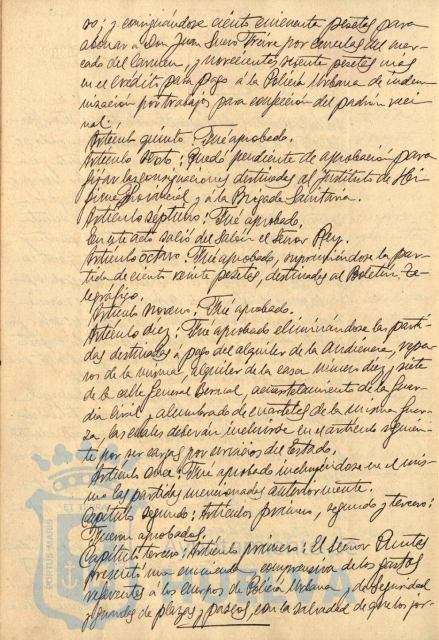 ros; y consignándose ciento cincuenta pesetas para
abonar a Don Juan Suero Freire por concertas del mer-
cado del Carmen y novecientas veinte pesetas mas
en el crédito para pago á la Policía Urbana de indem-
nización por trabajos para confección del padrón veci-
nal.
Artículo quinto: Fué aprobado.
Artículo sexto: Quedó pendiente de aprobación para
fijar las consignaciones destinadas al Instituto de Hi-
giene Provincial y á la Brigada Sanitaria.
Artículo séptimo: Fué aprobado.
En este acto salió del Salón el Señor Rey.
Artículo octavo: Fué aprobado, suprimiéndose la par-
tida de ciento veinte pesetas, destinadas al Boletín Te-
legráfico.
Artículo noveno: Fué aprobado.
Artículo diez: Fué aprobado eliminándose las parti-
das destinadas á pago del alquiler de la Audiencia, repa-
ros de la misma, alquiler de la casa número diez y siete
de la calle General Bernal, acuartelamiento de la Guar-
dia Civil, alumbrado de cuarteles de la misma fuer-
za, las cuales deberán incluirse en el artículo siguien-
te por ser cargas por servicios del Estado.
Artículo once: Fué aprobado incluyéndose en el mis-
mo las partidas mencionadas anteriormente.
Capítulo segundo: Artículos primero, segundo y tercero:
Fueron aprobados.
Capítulo tercero: Artículo primero: El Señor Puntes
presentó una enmienda comprensiva de los gastos
referentes á los cuerpos de Policía Urbana, de seguridad
y guardas de plazas y paseos, con la salvedad de que los por-
PORTUS MAGNUS